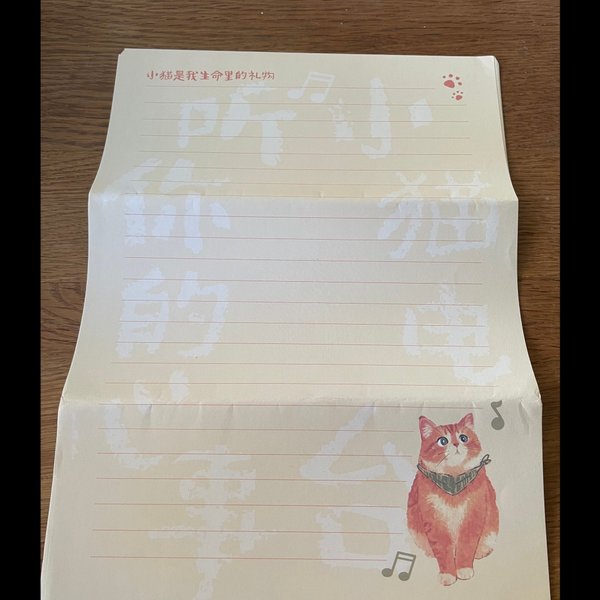 小猫是我生命里的礼物
小猫电台
听你的心事